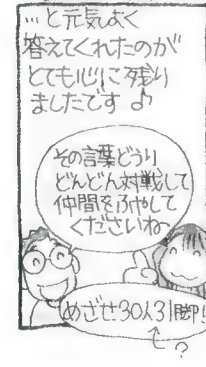 …と元気よく
答えてくれたのが
とても心に残り
ましたです♪
その言葉どうり
どんどん対戦して
仲間をふやして
くださいね
めざせ30人31脚!
?